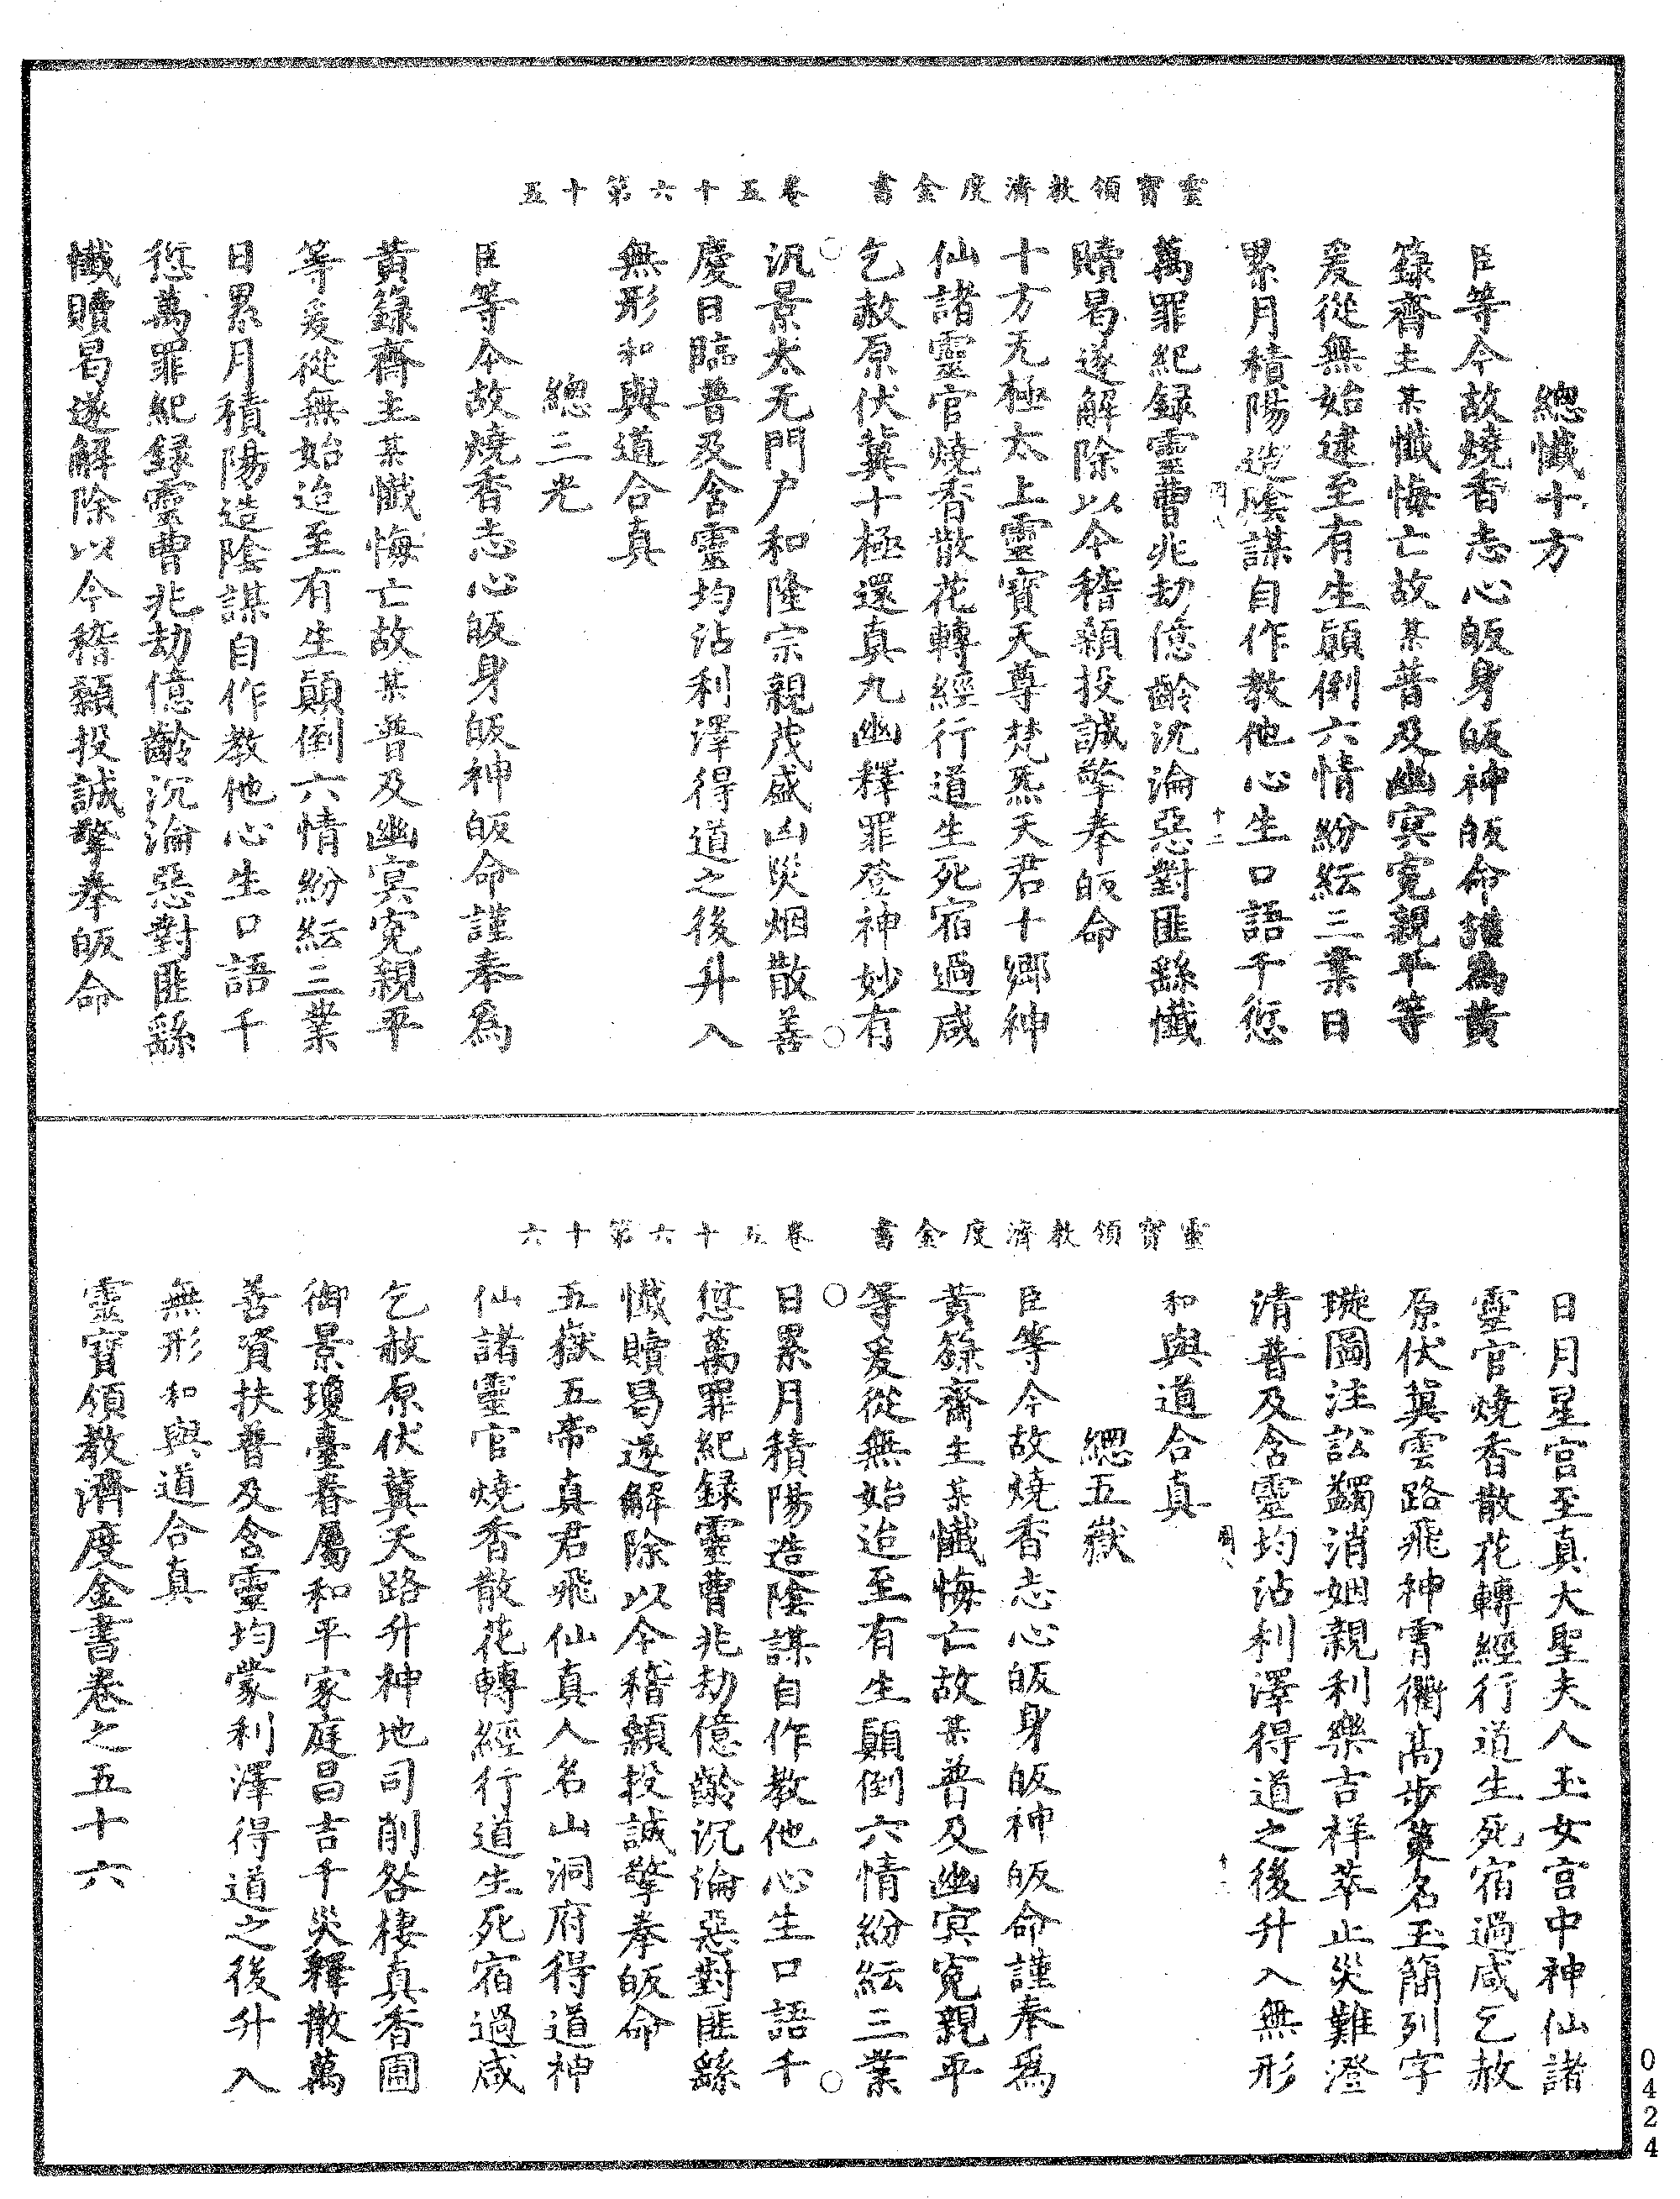 靈寶領教濟度金書　卷五十六第十五
總懺十方
臣等今故燒香志心皈身皈神皈命謹為黃
籙齊主某懺悔亡故某普及幽冥寃親平等
爰從無始逮至有生顛倒六情紛紜三業日
累月積陽造陰謀自作教他心生口語千愆
萬罪紀録靈曹兆劫億齡沈淪惡對匪繇懺
贖曷遂解除以今稽顙投誠擎奉皈命
十方无極太上靈寶天尊梵炁天君十鄉神
仙諸靈官燒香散花轉經行道生死宿過咸
乞赦原伏冀十極還真九幽釋罪登神妙有
汎景太无門户和隆宗親茂盛凶災烟散善
慶日臨普及含靈均沾利澤得道之後升入
無形和與道合真
總三光
臣等今故燒香志心皈身皈神皈命謹奉為
黃籙齋主某懺悔亡故某普及幽冥寃親平
等爰從無始迨至有生顛倒六情紛紜三業
日累月積陽造陰謀自作教他心生口語千
愆萬罪紀録靈曹兆劫億齡沉淪惡對匪繇
懺贖曷遂解除以今稽顙投誠擎奉皈命
靈寶領教濟度金書　卷五十六第十六
日月星宫至真大聖夫人玉女宫中神仙諸
靈官燒香散花轉經行道生死宿過咸乞赦
原伏冀雲路飛神霄衢高步策名玉簡列字
璇圖注訟蠲消姻親利樂吉祥萃止災難澄
清普及含靈均沾利澤得道之後升入無形
和與道合真
總五嶽
臣等今故燒香志心皈身皈神皈命謹奉為
黃籙齋主某懺悔亡故某普及幽冥寃親平
等爰從無始迨至有生顛倒六情紛紜三業
日累月積陽造陰謀自作教他心生口語千
愆萬罪紀録靈曹兆劫億齡沉淪惡對匪繇
懺贖曷遂解除以今稽顙投誠擎奉皈命
五嶽五帝真君飛仙真人名山洞府得道神
仙諸靈官燒香散花轉經行道生死宿過咸
乞赦原伏冀天路升神地司削咎棲真香圃
御景瓊臺眷屬和平家庭昌吉千災釋散萬
善資扶普及含靈均蒙利澤得道之後升入
無形和與道合真
靈寶領教濟度金書卷之五十六
0424